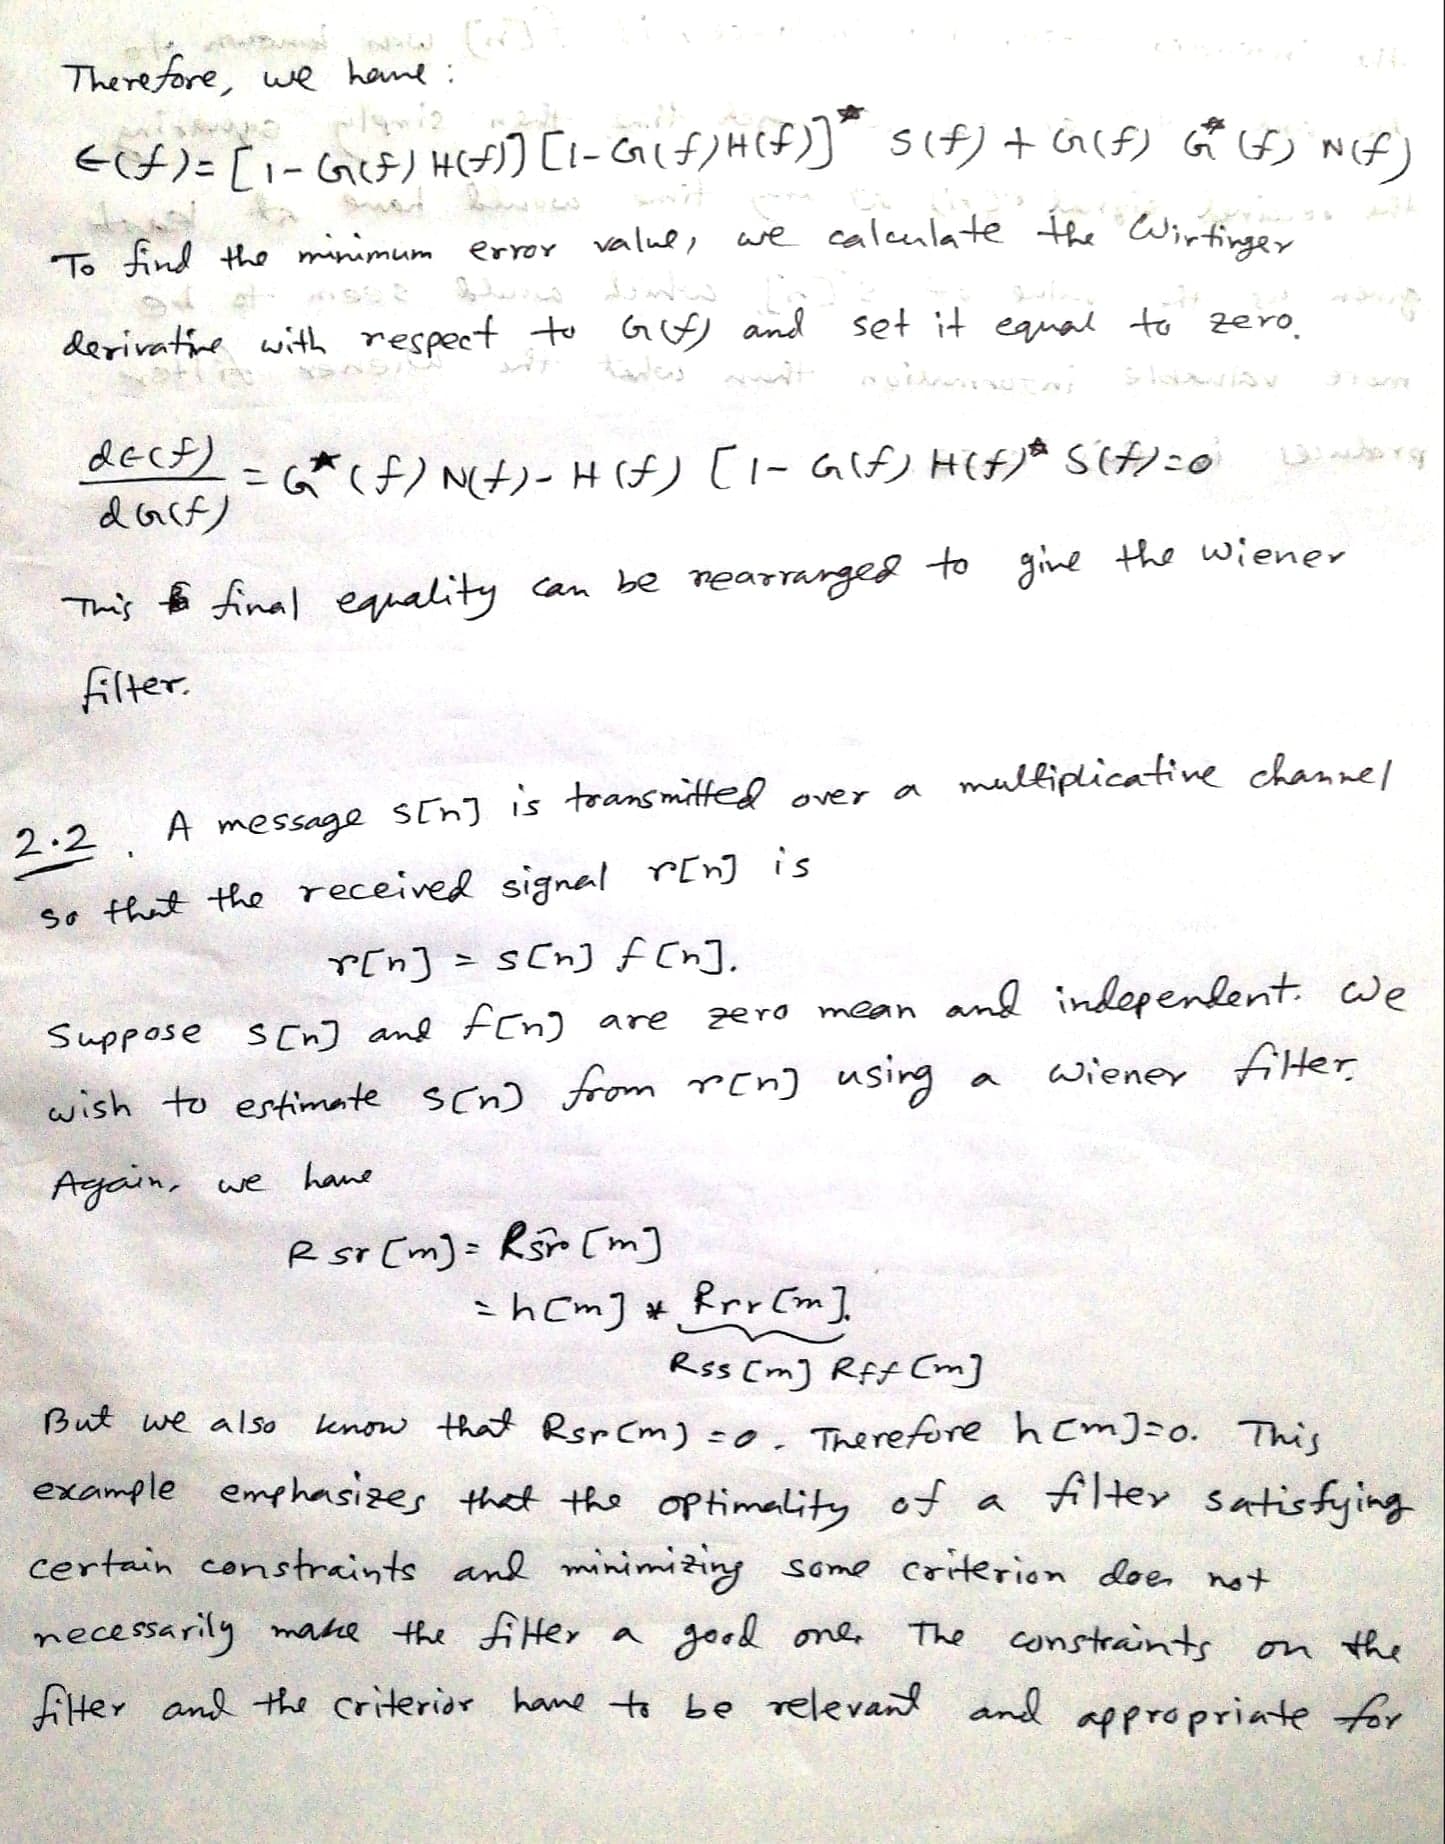 Therefore, we have :
ϵ(f)= [1-G(f) H(f)] [1-G(f)H(f)]* S(f) + G(f) G*(f) N(f)
To find the minimum error value, we calculate the Wirtinger
derivative with respect to G(f) and set it equal to zero.
dϵ(f)
dG(f)
= G*(f) N(f)- H(f) [1- G(f) H(f)* S(f)=0
This final equality can be rearranged to give the wiener
filter.
2.2. A message s[n] is transmitted over a multiplicative channel
so that the received signal r[n] is
r[n] = s[n] f[n].
Suppose s[n] and f[n] are zero mean and independent. We
wish to estimate s[n] from r[n] using a wiener filter.
Again, we have
Rsr[m]= Rŝr[m]
= h[m] * Rrr[m].
Rss[m] Rff[m]
But we also know that Rsr[m] = 0. Therefore h[m]=0. This
example emphasizes that the optimality of a filter satisfying
certain constraints and minimizing some criterion does not
necessarily make the filter a good one. The constraints on the
filter and the criterior have to be relevant and appropriate for